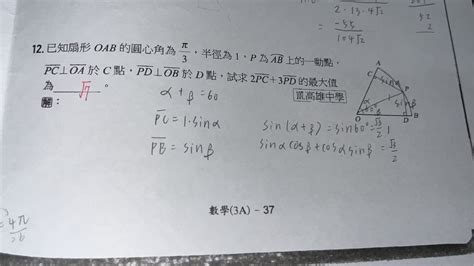 2·13·4√2
= -55
104√2
12. 已知扇形 OAB 的圓心角為 π/3，半徑為 1，P 為 AB 上的一動點，
PC⊥OA 於 C 點，PD⊥OB 於 D 點，試求 2PC+3PD 的最大值
為 √7 。
〖高雄中學〗
解：
α + β = 60
PC = 1·sinα
PB = sinβ
sin(α+β) = sin60° = √3/2
sinα cosβ + cosα sinβ = √3/2
A
C
P
O
D
B
數學(3A) - 37
= 4π